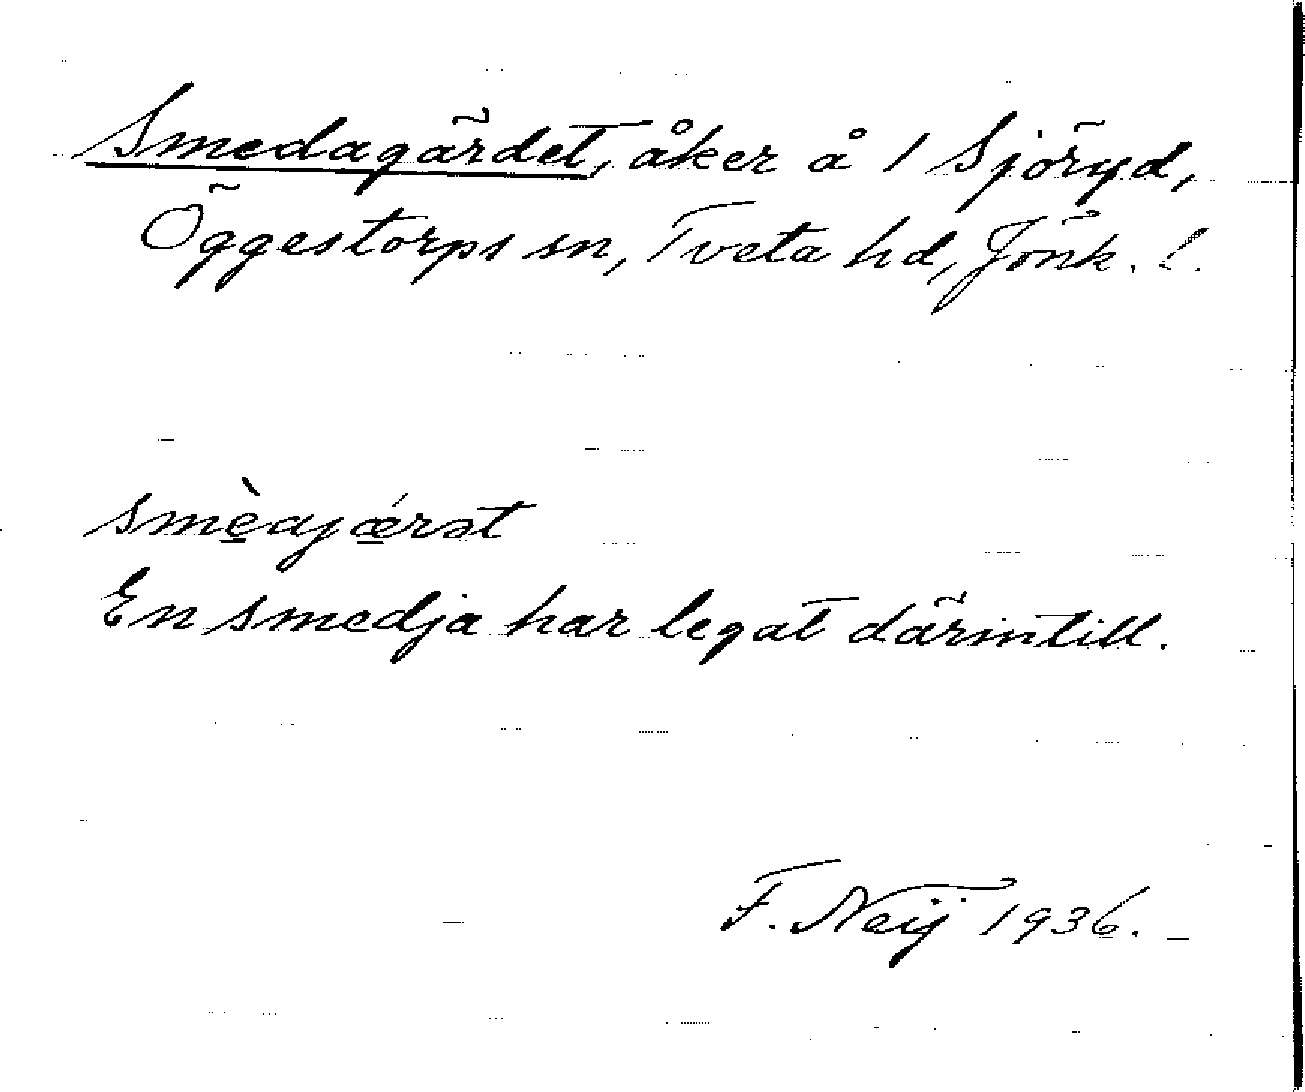 Smedagärdet, åker å 1 Sjöryd,
Öggestorps sn, Tveta hd, Jönk. l.
smè̱ajǽ̱rət
En smedja har legat därintill.
F. Neij 1936.